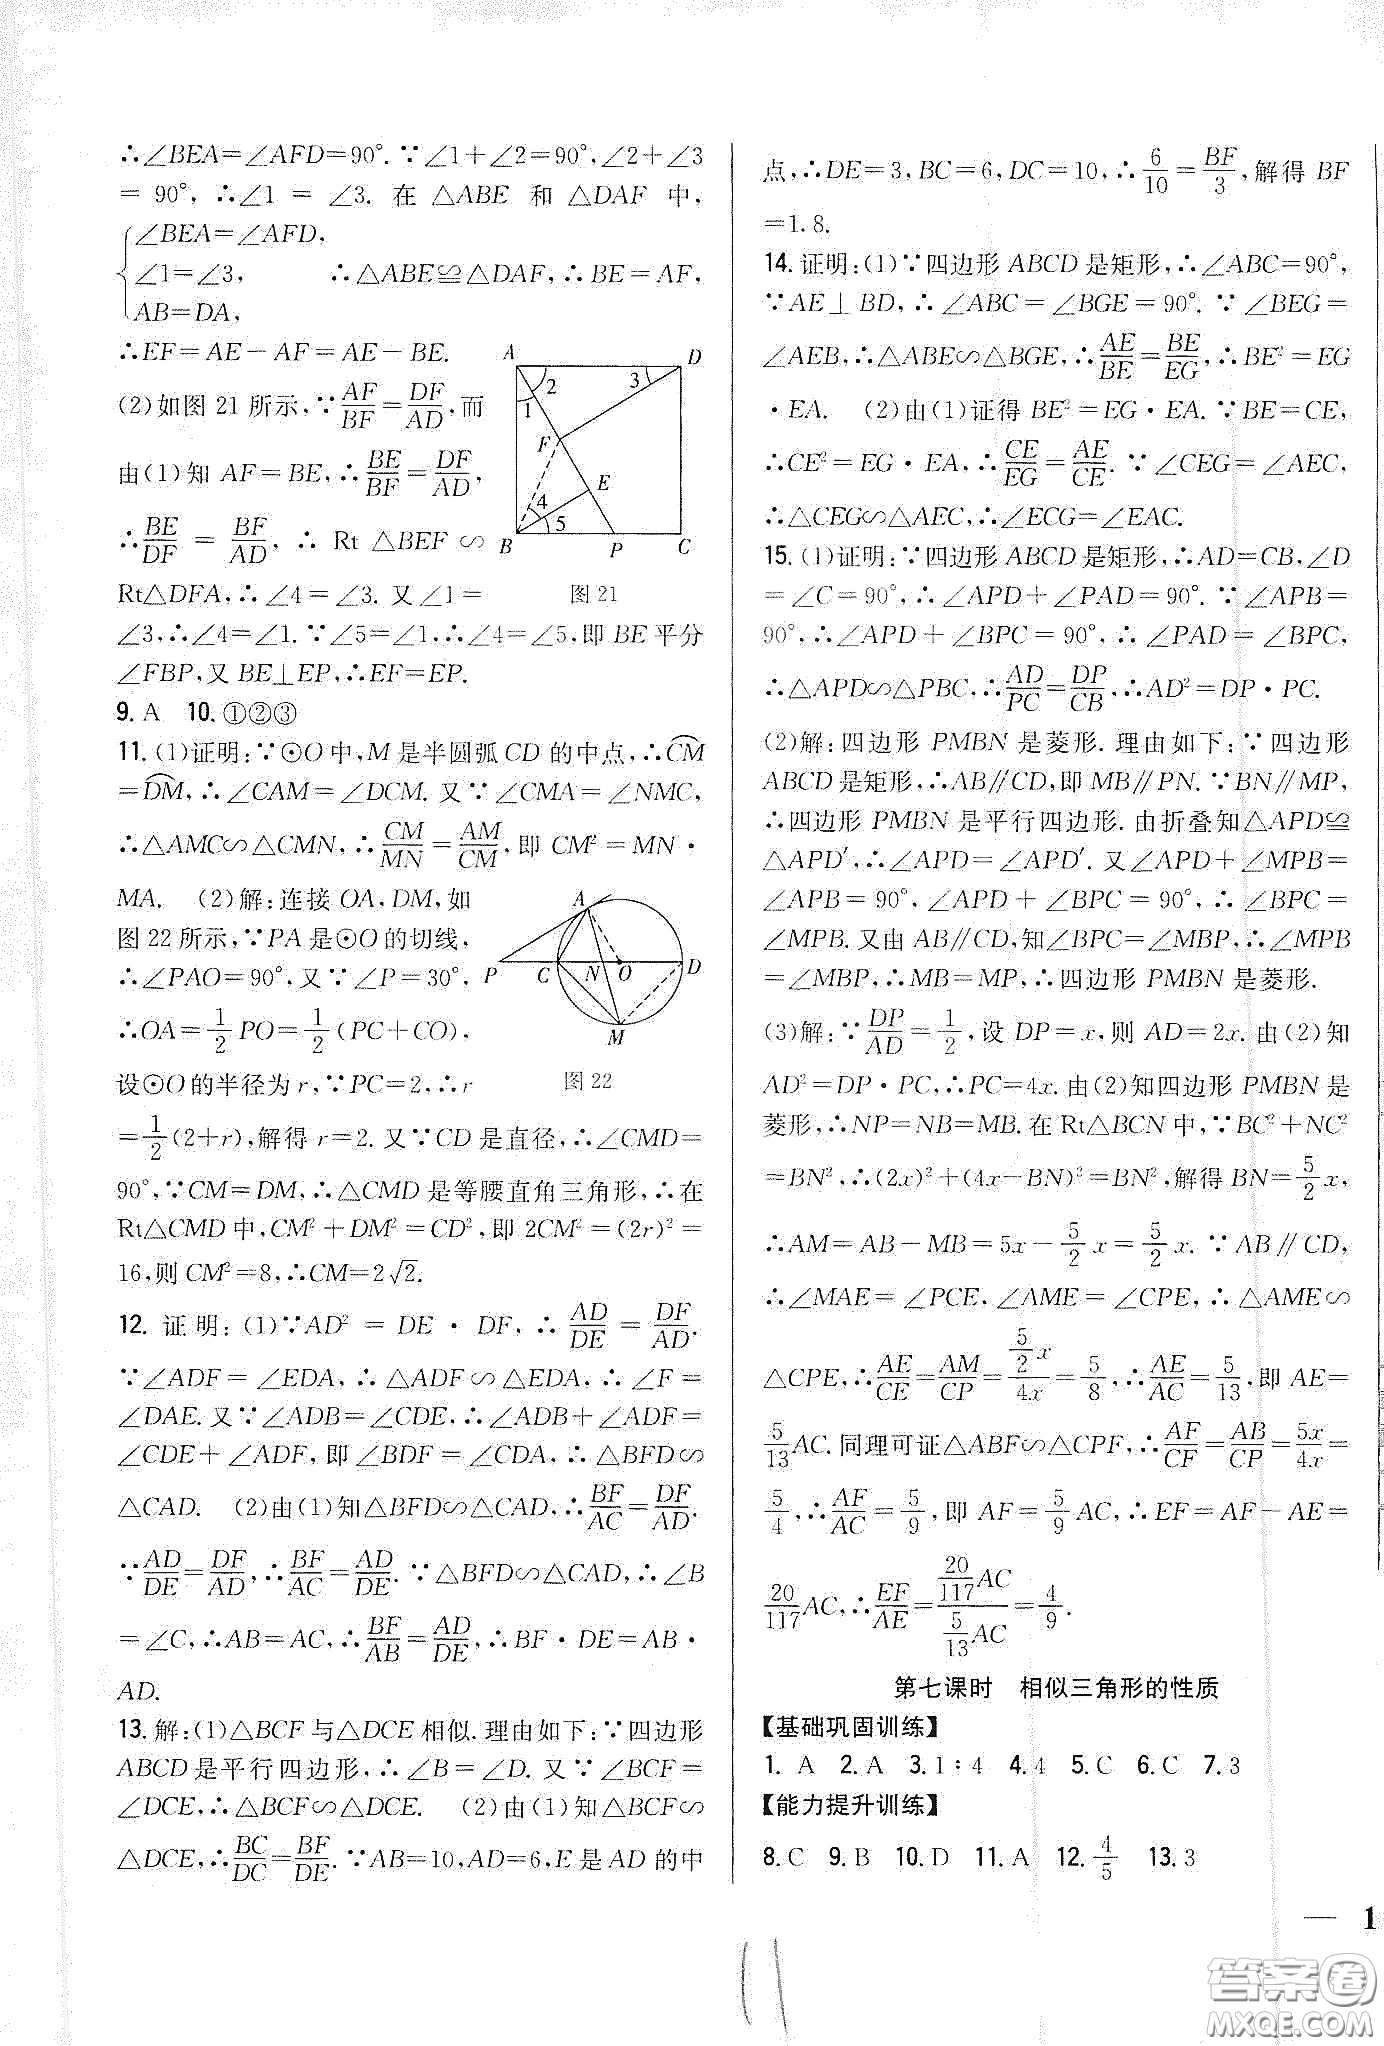 ∴∠BEA=∠AFD=90°.∵∠1+∠2=90°,∠2+∠3
=90°,∴∠1=∠3.在△ABE和△DAF中,
∠BEA=∠AFD,
∠1=∠3, ∴△ABE≌△DAF,∴BE=AF,
AB=DA,
∴EF=AE-AF=AE-BE.
(2)如图21所示,∵AF/BF=DF/AD,而
由(1)知AF=BE,∴BE/BF=DF/AD,
∴BE/DF=BF/AD,∴Rt△BEF∽
Rt△DFA,∴∠4=∠3.又∠1=
∠3,∴∠4=∠1.∵∠5=∠1,∴∠4=∠5,即BE平分
∠FBP,又BE⊥EP,∴EF=EP.
A D
2 3
1
F
E
4
5
B P C
图21
9.A 10.①②③
11.(1)证明:∵⊙O中,M是半圆弧CD的中点,∴CM
=DM,∴∠CAM=∠DCM.又∵∠CMA=∠NMC,
∴△AMC∽△CMN,∴CM/MN=AM/CM,即CM²=MN·
MA. (2)解:连接OA,DM,如
图22所示,∵PA是⊙O的切线,
∴∠PAO=90°,又∵∠P=30°,
∴OA=1/2PO=1/2(PC+CO),
设⊙O的半径为r,∵PC=2,∴r
=1/2(2+r),解得r=2.又∵CD是直径,∴∠CMD=
90°,∵CM=DM,∴△CMD是等腰直角三角形,∴在
Rt△CMD中,CM²+DM²=CD²,即2CM²=(2r)²=
16,则CM²=8,∴CM=2√2.
A
P C N O D
M
图22
12.证明:(1)∵AD²=DE·DF,∴AD/DE=DF/AD.
∵∠ADF=∠EDA,∴△ADF∽△EDA,∴∠F=
∠DAE.又∵∠ADB=∠CDE,∴∠ADB+∠ADF=
∠CDE+∠ADF,即∠BDF=∠CDA,∴△BFD∽
△CAD. (2)由(1)知△BFD∽△CAD,∴BF/AC=DF/AD.
∵AD/DE=DF/AD,∴BF/AC=AD/DE.∵△BFD∽△CAD,∴∠B
=∠C,∴AB=AC,∴BF/AB=AD/DE,∴BF·DE=AB·
AD.
13.解:(1)△BCF与△DCE相似.理由如下:∵四边形
ABCD是平行四边形,∴∠B=∠D.又∵∠BCF=
∠DCE,∴△BCF∽△DCE. (2)由(1)知△BCF∽
△DCE,∴BC/DC=BF/DE.∵AB=10,AD=6,E是AD的中
点,∴DE=3,BC=6,DC=10,∴6/10=BF/3,解得BF
=1.8.
14.证明:(1)∵四边形ABCD是矩形,∴∠ABC=90°,
∵AE⊥BD,∴∠ABC=∠BGE=90°.∵∠BEG=
∠AEB,∴△ABE∽△BGE,∴AE/BE=BE/EG,∴BE²=EG
·EA. (2)由(1)证得BE²=EG·EA.∵BE=CE,
∴CE²=EG·EA,∴CE/EG=AE/CE.∵∠CEG=∠AEC,
∴△CEG∽△AEC,∴∠ECG=∠EAC.
15.(1)证明:∵四边形ABCD是矩形,∴AD=CB,∠D
=∠C=90°,∴∠APD+∠PAD=90°.∵∠APB=
90°,∴∠APD+∠BPC=90°,∴∠PAD=∠BPC,
∴△APD∽△PBC,∴AD/PC=DP/CB,∴AD²=DP·PC.
(2)解:四边形PMBN是菱形.理由如下:∵四边形
ABCD是矩形,∴AB∥CD,即MB∥PN.∵BN∥MP,
∴四边形PMBN是平行四边形.由折叠知△APD≌
△APD′,∴∠APD=∠APD′.又∠APD+∠MPB=
∠APB=90°,∠APD+∠BPC=90°,∴∠BPC=
∠MPB.又由AB∥CD,知∠BPC=∠MBP,∴∠MPB
=∠MBP,∴MB=MP,∴四边形PMBN是菱形.
(3)解:∵DP/AD=1/2,设DP=x,则AD=2x.由(2)知
AD²=DP·PC,∴PC=4x.由(2)知四边形PMBN是
菱形,∴NP=NB=MB.在Rt△BCN中,∵BC²+NC²
=BN²,∴(2x)²+(4x-BN)²=BN²,解得BN=5/2x,
∴AM=AB-MB=5x-5/2x=5/2x.∵AB∥CD,
∴∠MAE=∠PCE,∠AME=∠CPE,∴△AME∽
△CPE,∴AE/CE=AM/CP=(5/2x)/4x=5/8,∴AE/AC=5/13,即AE=
5/13AC.同理可证△ABF∽△CPF,∴AF/CF=AB/CP=5x/4x=
5/4,∴AF/AC=5/9,即AF=5/9AC,∴EF=AF-AE=
20/117AC,∴EF/AE=(20/117AC)/(5/13AC)=4/9.
第七课时 相似三角形的性质
【基础巩固训练】
1. A 2.A 3.1∶4 4.4 5.C 6.C 7.3
【能力提升训练】
8.C 9.B 10.D 11.A 12.4/5 13.3
— 1
11
答案卷
MXQE.COM